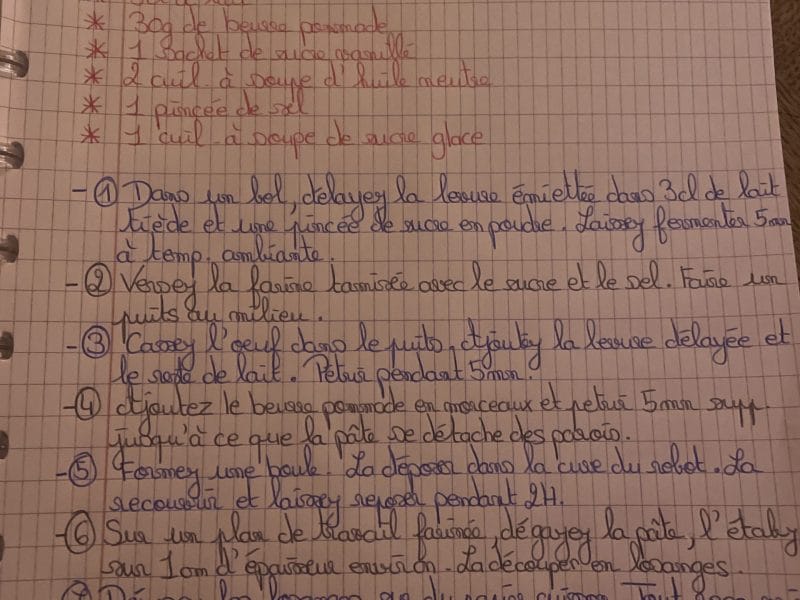 * 30g de beurre pommade
* 1 sachet de sucre vanillé
* 2 cuil. à soupe d'huile neutre
* 1 pincée de sel
* 1 cuil. à soupe de sucre glace
- ① Dans un bol, délayez la levure émiettée dans 3cl de lait
tiède et une pincée de sucre en poudre. Laissez fermenter 5mn
à temp. ambiante.
- ② Versez la farine tamisée avec le sucre et le sel. Faire un
puits au milieu.
- ③ Cassez l'oeuf dans le puits. Ajoutez la levure délayée et
le reste de lait. Pétrir pendant 5mn.
- ④ Ajoutez le beurre pommade en morceaux et petrir 5mn supp.
jusqu'à ce que la pâte se détache des parois.
- ⑤ Formez une boule. La déposer dans la cuve du robot. La
recouvrir et laissez reposer pendant 2H.
- ⑥ Sur un plan de travail fariné, dégazez la pâte, l'étalez
sur 1cm d'épaisseur environ. La découper en losanges.
⑦